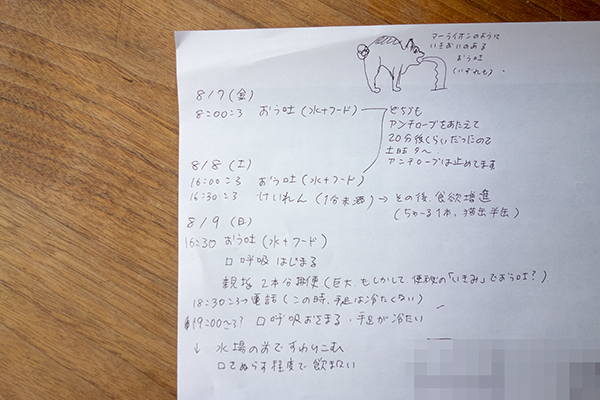 マーライオンのように
いきおいのある
おう吐
(いずれも)
8/7 (金)
8:00ころ おう吐 (水+フード)
どちらも
アンチローブをあたえて
20分後くらいだったので
土曜夕〜
アンチローブは止めてます
8/8 (土)
16:00ころ おう吐 (水+フード)
16:30ころ けいれん (1分未満) → その後、食欲増進
(ちゅーる1本、猫缶半缶)
8/9 (日)
16:30 おう吐 (水+フード)
口呼吸はじまる
親指2本分排便 (巨大 もしかして、便秘の「いきみ」でおう吐?)
18:30ころ→電話 (この時、手足は冷たくない)
19:00〜ころ? 口呼吸おさまる・手足が冷たい
↓ 水場の前ですわりこむ
口でぬらす程度で飲まない